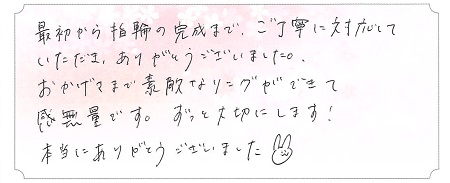 最初から指輪の完成まで、ご丁寧に対応して
いただき、ありがとうございました。
おかげさまで素敵なリングができて
感無量です。ずっと大切にします!
本当にありがとうございました